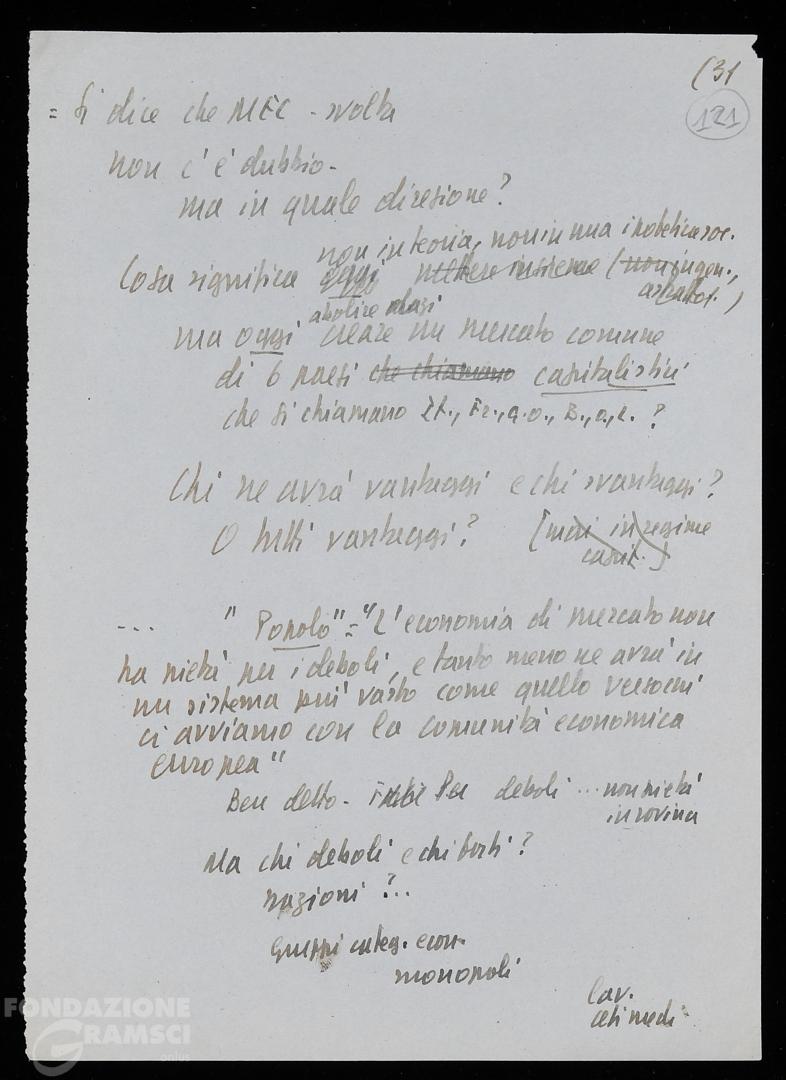 (31
121
= Si dice che MEC - svolta
non c'è dubbio -
ma in quale direzione?
non in teoria, non in una ipotetica soc.
Cosa significa oggi mettere insieme (non ungon.,
astratt.)
abolire dazi
ma oggi creare un mercato comune
di 6 paesi che chiamano capitalistici
che si chiamano It., Fr., G.O., B., O., L. ?
Chi ne avrà vantaggi e chi svantaggi?
O tutti vantaggi? [mai in regime
capit.]
... "Popolo" = "L'economia di mercato non
ha pietà per i deboli, e tanto meno ne avrà in
un sistema più vasto come quello verso cui
ci avviamo con la comunità economica
europea"
Ben detto - Per deboli ... non pietà
in rovina
Ma chi deboli e chi forti?
nazioni?..
Gruppi categ. econ.
monopoli
Lav.
ceti medi
FONDAZIONE
GRAMSCI
onlus